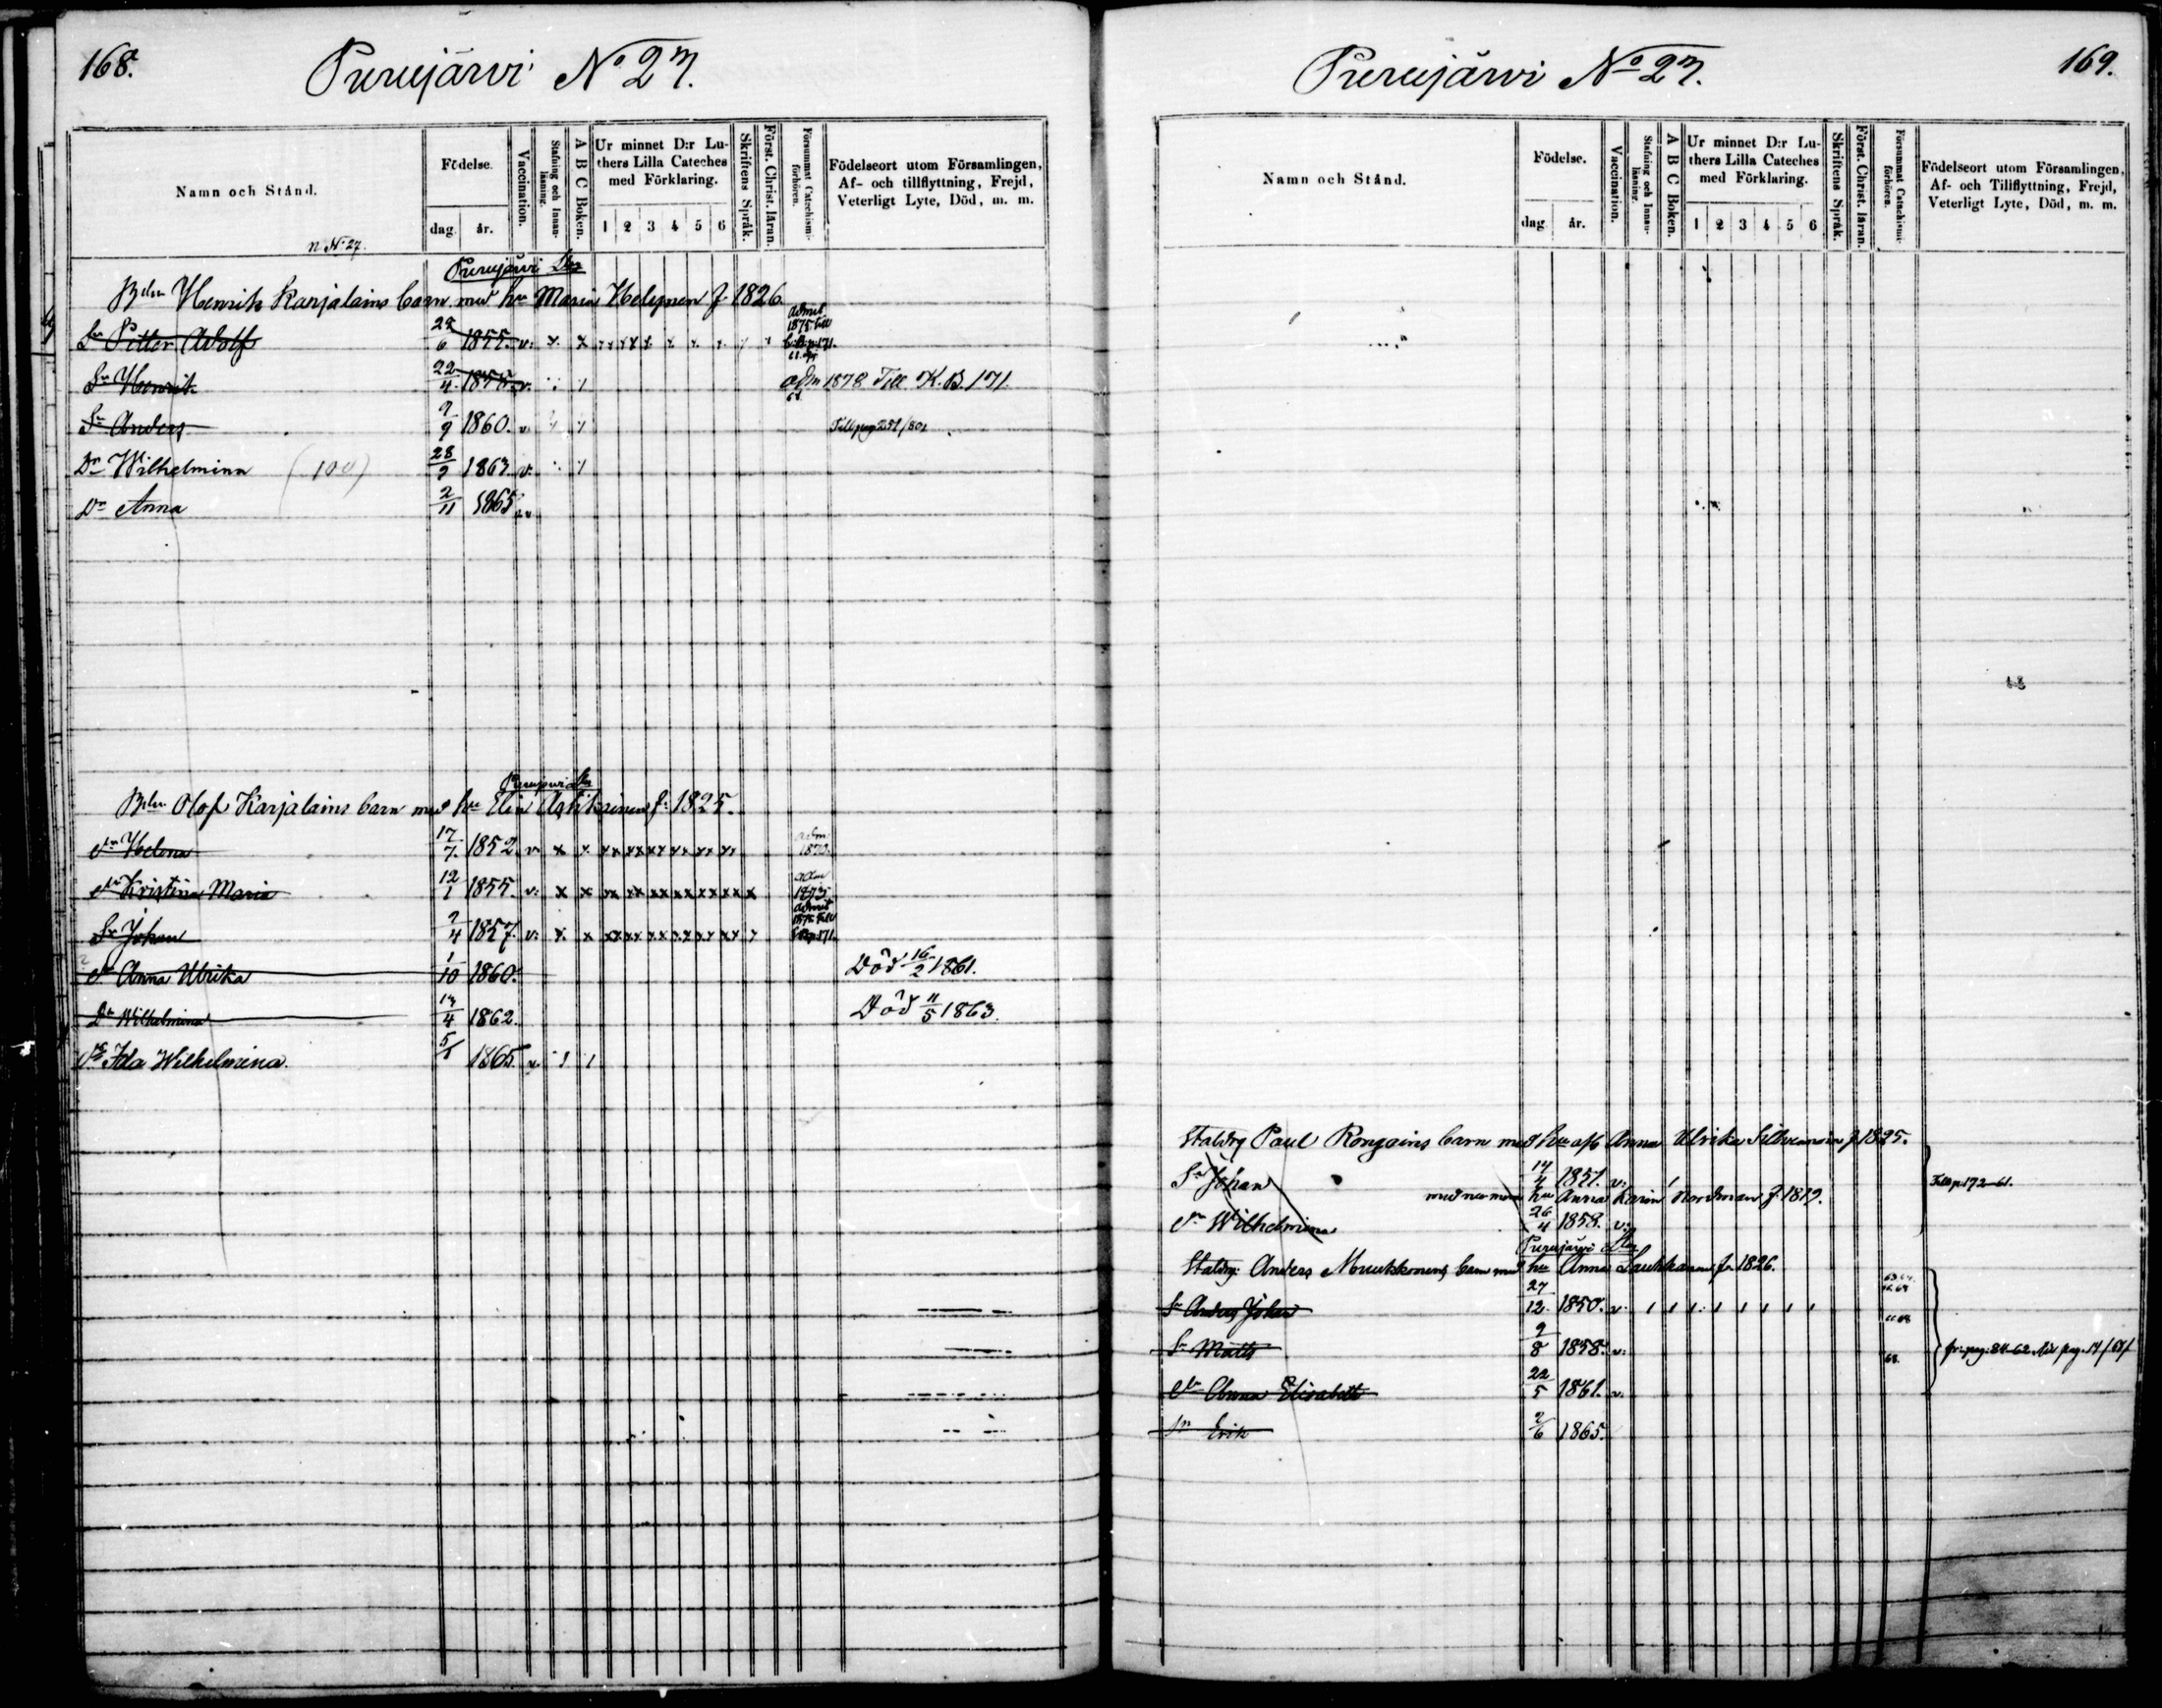 168.
Purujärvi No 27.
Namn och Stånd.
Födelse.
dag. år.
Vaccination.
Stafning och Innan-läsning.
A B C Boken.
Ur minnet D:r Lu-
thers Lilla Cateches
med Förklaring.
1 2 3 4 5 6
Skriftens Språk.
Först. Christ. läran.
Försummat Catechismi-förhören.
Födelseort utom Församlingen,
Af- och tillflyttning, Frejd,
Veterligt Lyte, Död, m. m.
n No 27.
Purujärvi
Henrik Karjalains barn med hu Maria Holopnen f. 1826.
Sn Petter Adolf 28/6 1855. v: admit. 1875. till 171.
Sn Henrik 22/4. v. adm 1878 Till K. B. 171.
Sn Anders 9/9 1860. v.
Dr Wilhelmina (100) 28/9 1863 v.
Dr Anna 2/11 1865
Olof Karjalains barn med hu Elin f: 1825.
Dr Helena 17/7. 1852. v. adm
Dr Kristina Maria 12/1 1855. v: adm 1873
Sn Johan 2/4 1857. v: admit
Dr Anna Ulrika 1/10 1860. Död 16/2 1861.
Dr Wilhelmina 13/4 1862. Död 11/5 1863.
Dr Ida Wilhelmina. 5/1 1865. v.
169.
Purujärvi No 27.
Namn och Stånd.
Födelse.
dag år.
Vaccination.
Stafning och Innan-läsning.
A B C Boken.
Ur minnet D:r Lu-
thers Lilla Cateches
med Förklaring.
1 2 3 4 5 6
Skriftens Språk.
Först. Christ. läran.
Försummat Catechismi-förhören.
Födelseort utom Församlingen,
Af- och Tillflyttning, Frejd,
Veterligt Lyte, Död, m. m.
Paul Rongains barn med hu afl Anna Ulrika f 1825.
Sn Johan 14/4 1851. v. Till p. 172-61.
hu Anna Karin Nordman f. 1819.
Dr Wilhelmina 26/4 1858. v:
Purujärvi
Anders Muukkonens barn med hu Anna Laukkanen f. 1826.
Sn Anders Johan 27/12. 1850. v.
Sn Matts 9/8 1858. v. fr. pag. 84-62.
Dr Anna Elisabeth 22/5 1861. v.
Sn Erik 2/6 1865.